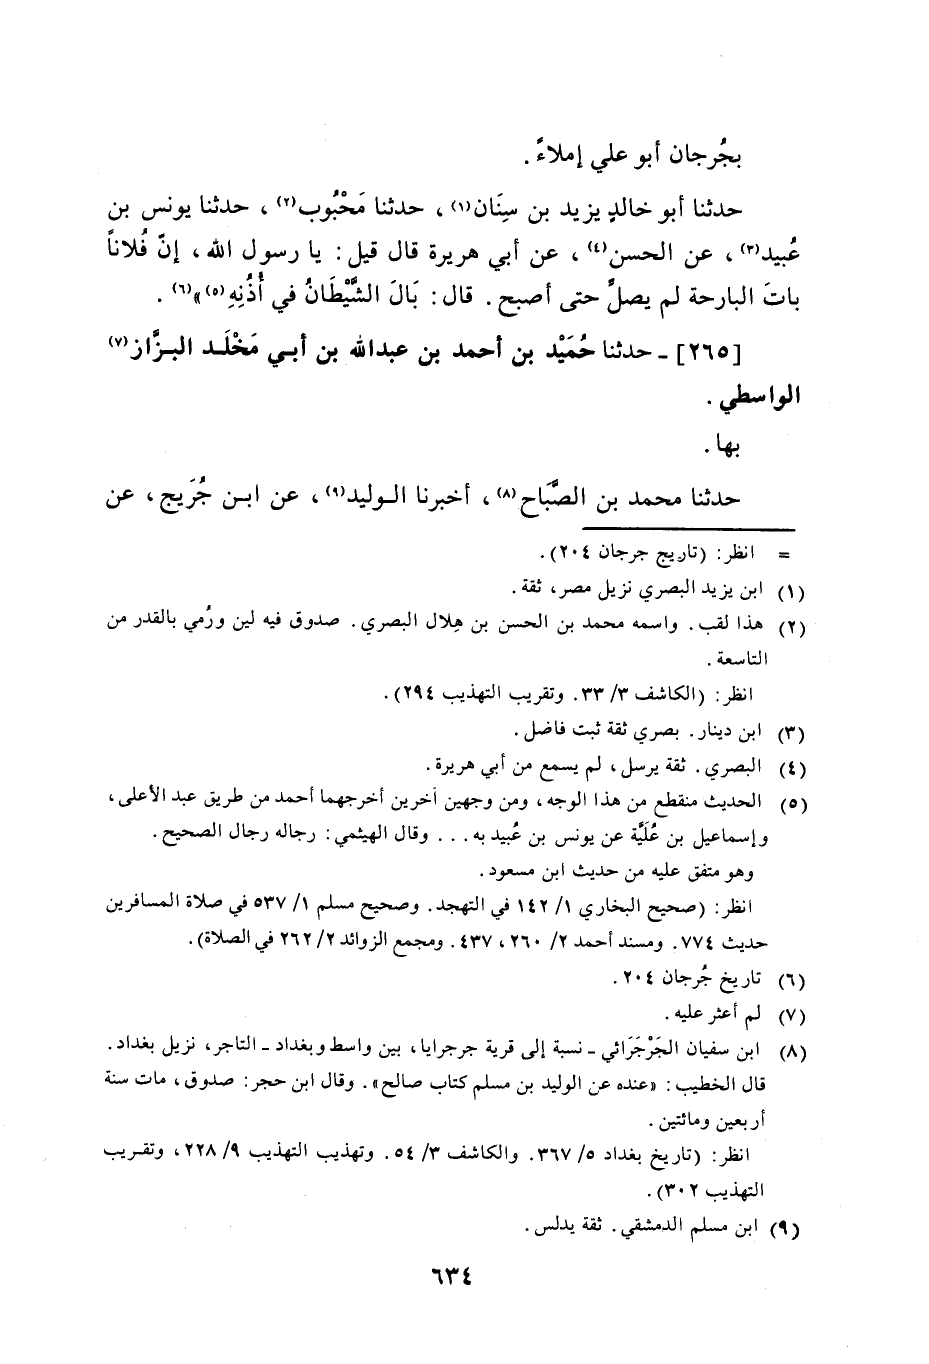 بجُرجان أبو علي إملاءً .
حدثنا أبو خالدٍ يزيد بن سِنَان(١) ، حدثنا مَحْبُوب(٢) ، حدثنا يونس بن
عُبيد(٣) ، عن الحسن(٤) ، عن أبي هريرة قال قيل : يا رسول الله ، إنّ فُلاناً
باتَ البارحة لم يصلِّ حتى أصبح . قال : بَالَ الشَّيْطَانُ في أُذُنِهِ(٥)»(٦) .
[٢٦٥] ـ حدثنا حُمَيْد بن أحمد بن عبدالله بن أبي مَخْلَد البزَّاز(٧)
الواسطي .
بها .
حدثنا محمد بن الصَّبَاح(٨) ، أخبرنا الوليد(٩) ، عن ابن جُرَيج ، عن
= انظر : (تاريج جرجان ٢٠٤) .
(١) ابن يزيد البصري نزيل مصر، ثقة .
(٢) هذا لقب . واسمه محمد بن الحسن بن هِلال البصري . صدوق فيه لين ورُمي بالقدر من
التاسعة .
انظر : (الكاشف ٣/ ٣٣ . وتقريب التهذيب ٢٩٤) .
(٣) ابن دينار . بصري ثقة ثبت فاضل .
(٤) البصري . ثقة يرسل ، لم يسمع من أبي هريرة .
(٥) الحديث منقطع من هذا الوجه ، ومن وجهين آخرين أخرجهما أحمد من طريق عبد الأعلى ،
وإسماعيل بن عُلَيَّة عن يونس بن عُبيد به . . . وقال الهيثمي : رجاله رجال الصحيح .
وهو متفق عليه من حديث ابن مسعود .
انظر : (صحيح البخاري ١/ ١٤٢ في التهجد . وصحيح مسلم ١/ ٥٣٧ في صلاة المسافرين
حديث ٧٧٤ . ومسند أحمد ٢/ ٢٦٠ ، ٤٣٧ . ومجمع الزوائد ٢/ ٢٦٢ في الصلاة) .
(٦) تاريخ جُرجان ٢٠٤ .
(٧) لم أعثر عليه .
(٨) ابن سفيان الجَرْجَرَائي ـ نسبة إلى قرية جرجرايا ، بين واسط وبغداد ـ التاجر ، نزيل بغداد .
قال الخطيب : «عنده عن الوليد بن مسلم كتاب صالح» . وقال ابن حجر : صدوق ، مات سنة
أربعين ومائتين .
انظر : (تاريخ بغداد ٥/ ٣٦٧ . والكاشف ٣/ ٥٤ . وتهذيب التهذيب ٩/ ٢٢٨ ، وتقريب
التهذيب ٣٠٢) .
(٩) ابن مسلم الدمشقي . ثقة يدلس .
٦٣٤